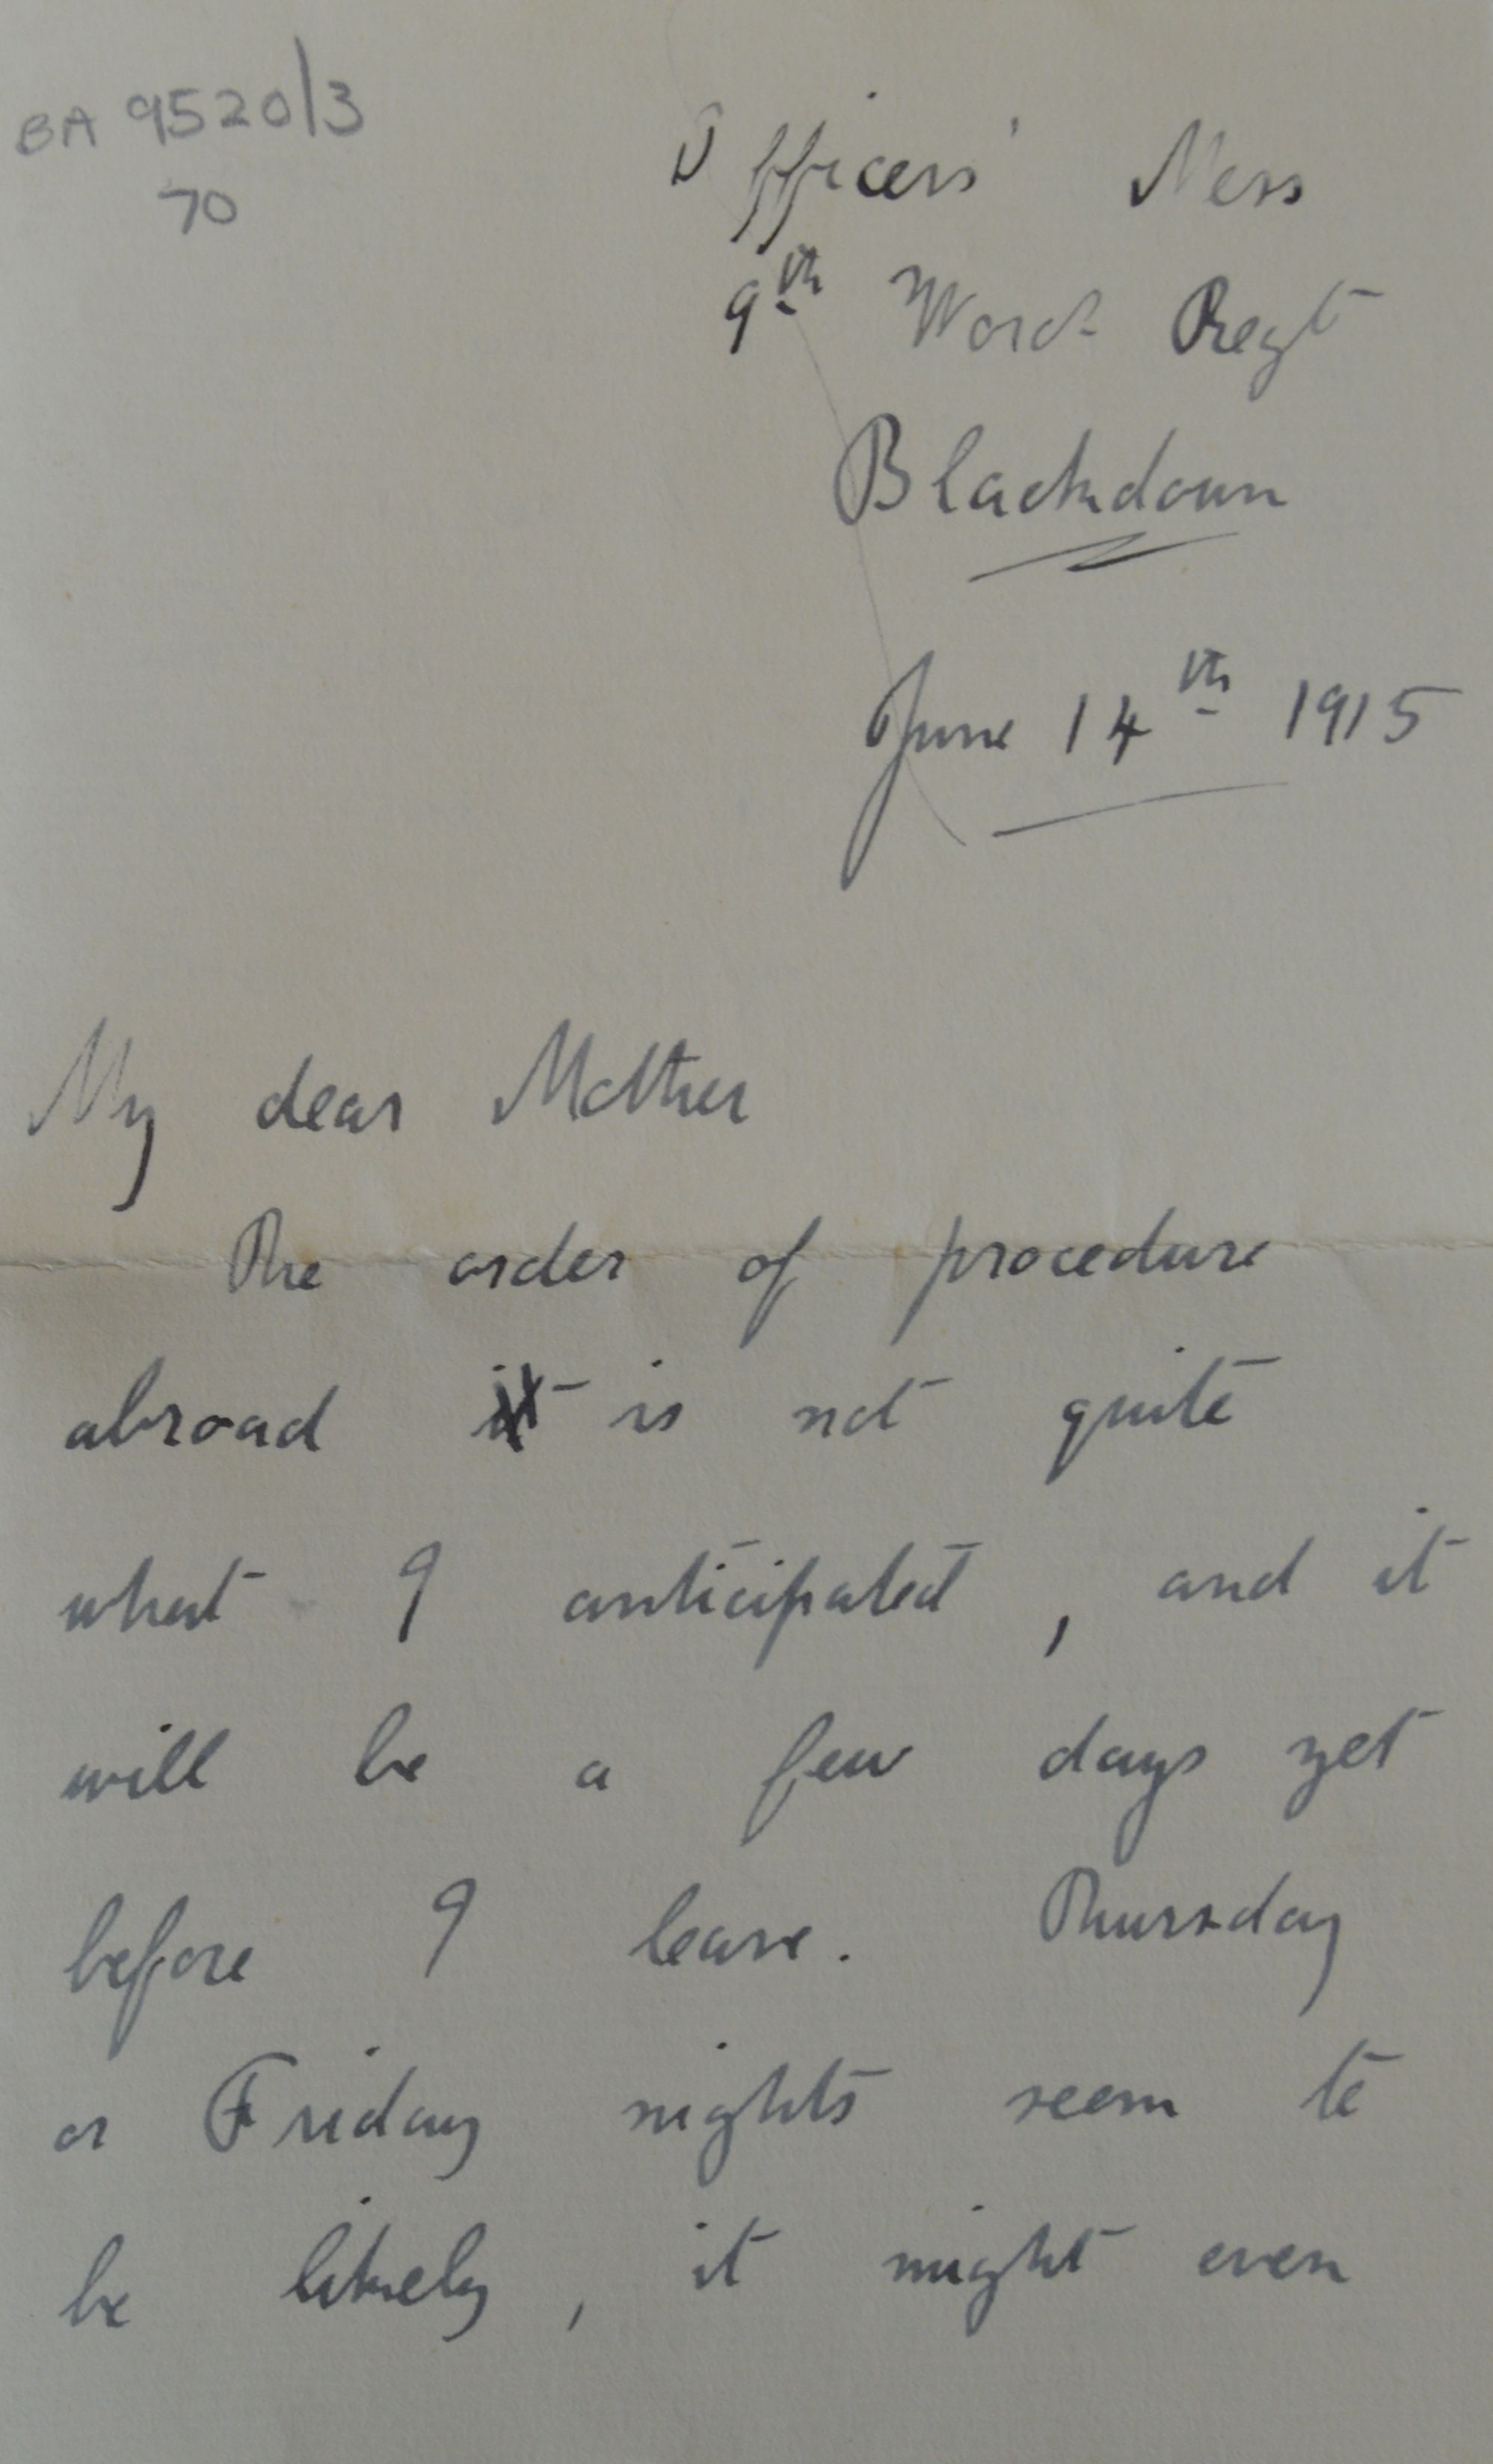 BA 9520/3
70
Officers' Mess
9th Worc. Regt
Blackdown
June 14th 1915
My dear Mother
The order of procedure
abroad it is not quite
what I anticipated, and it
will be a few days yet
before I leave. Thursday
or Friday nights seem to
be likely, it might even